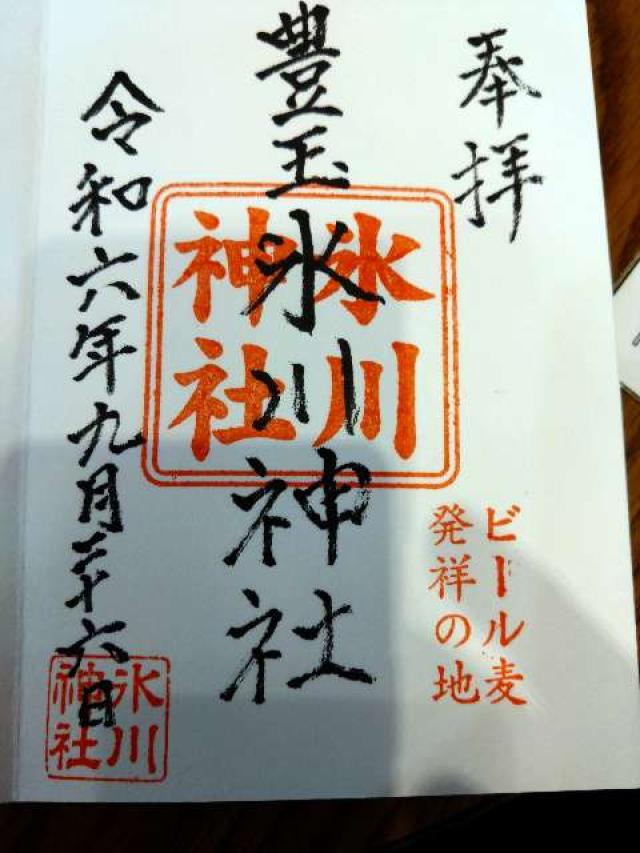 奉拝
豊玉氷川神社
氷川
神社
ビール麦
発祥の地
令和六年九月二十六日
氷川
神社